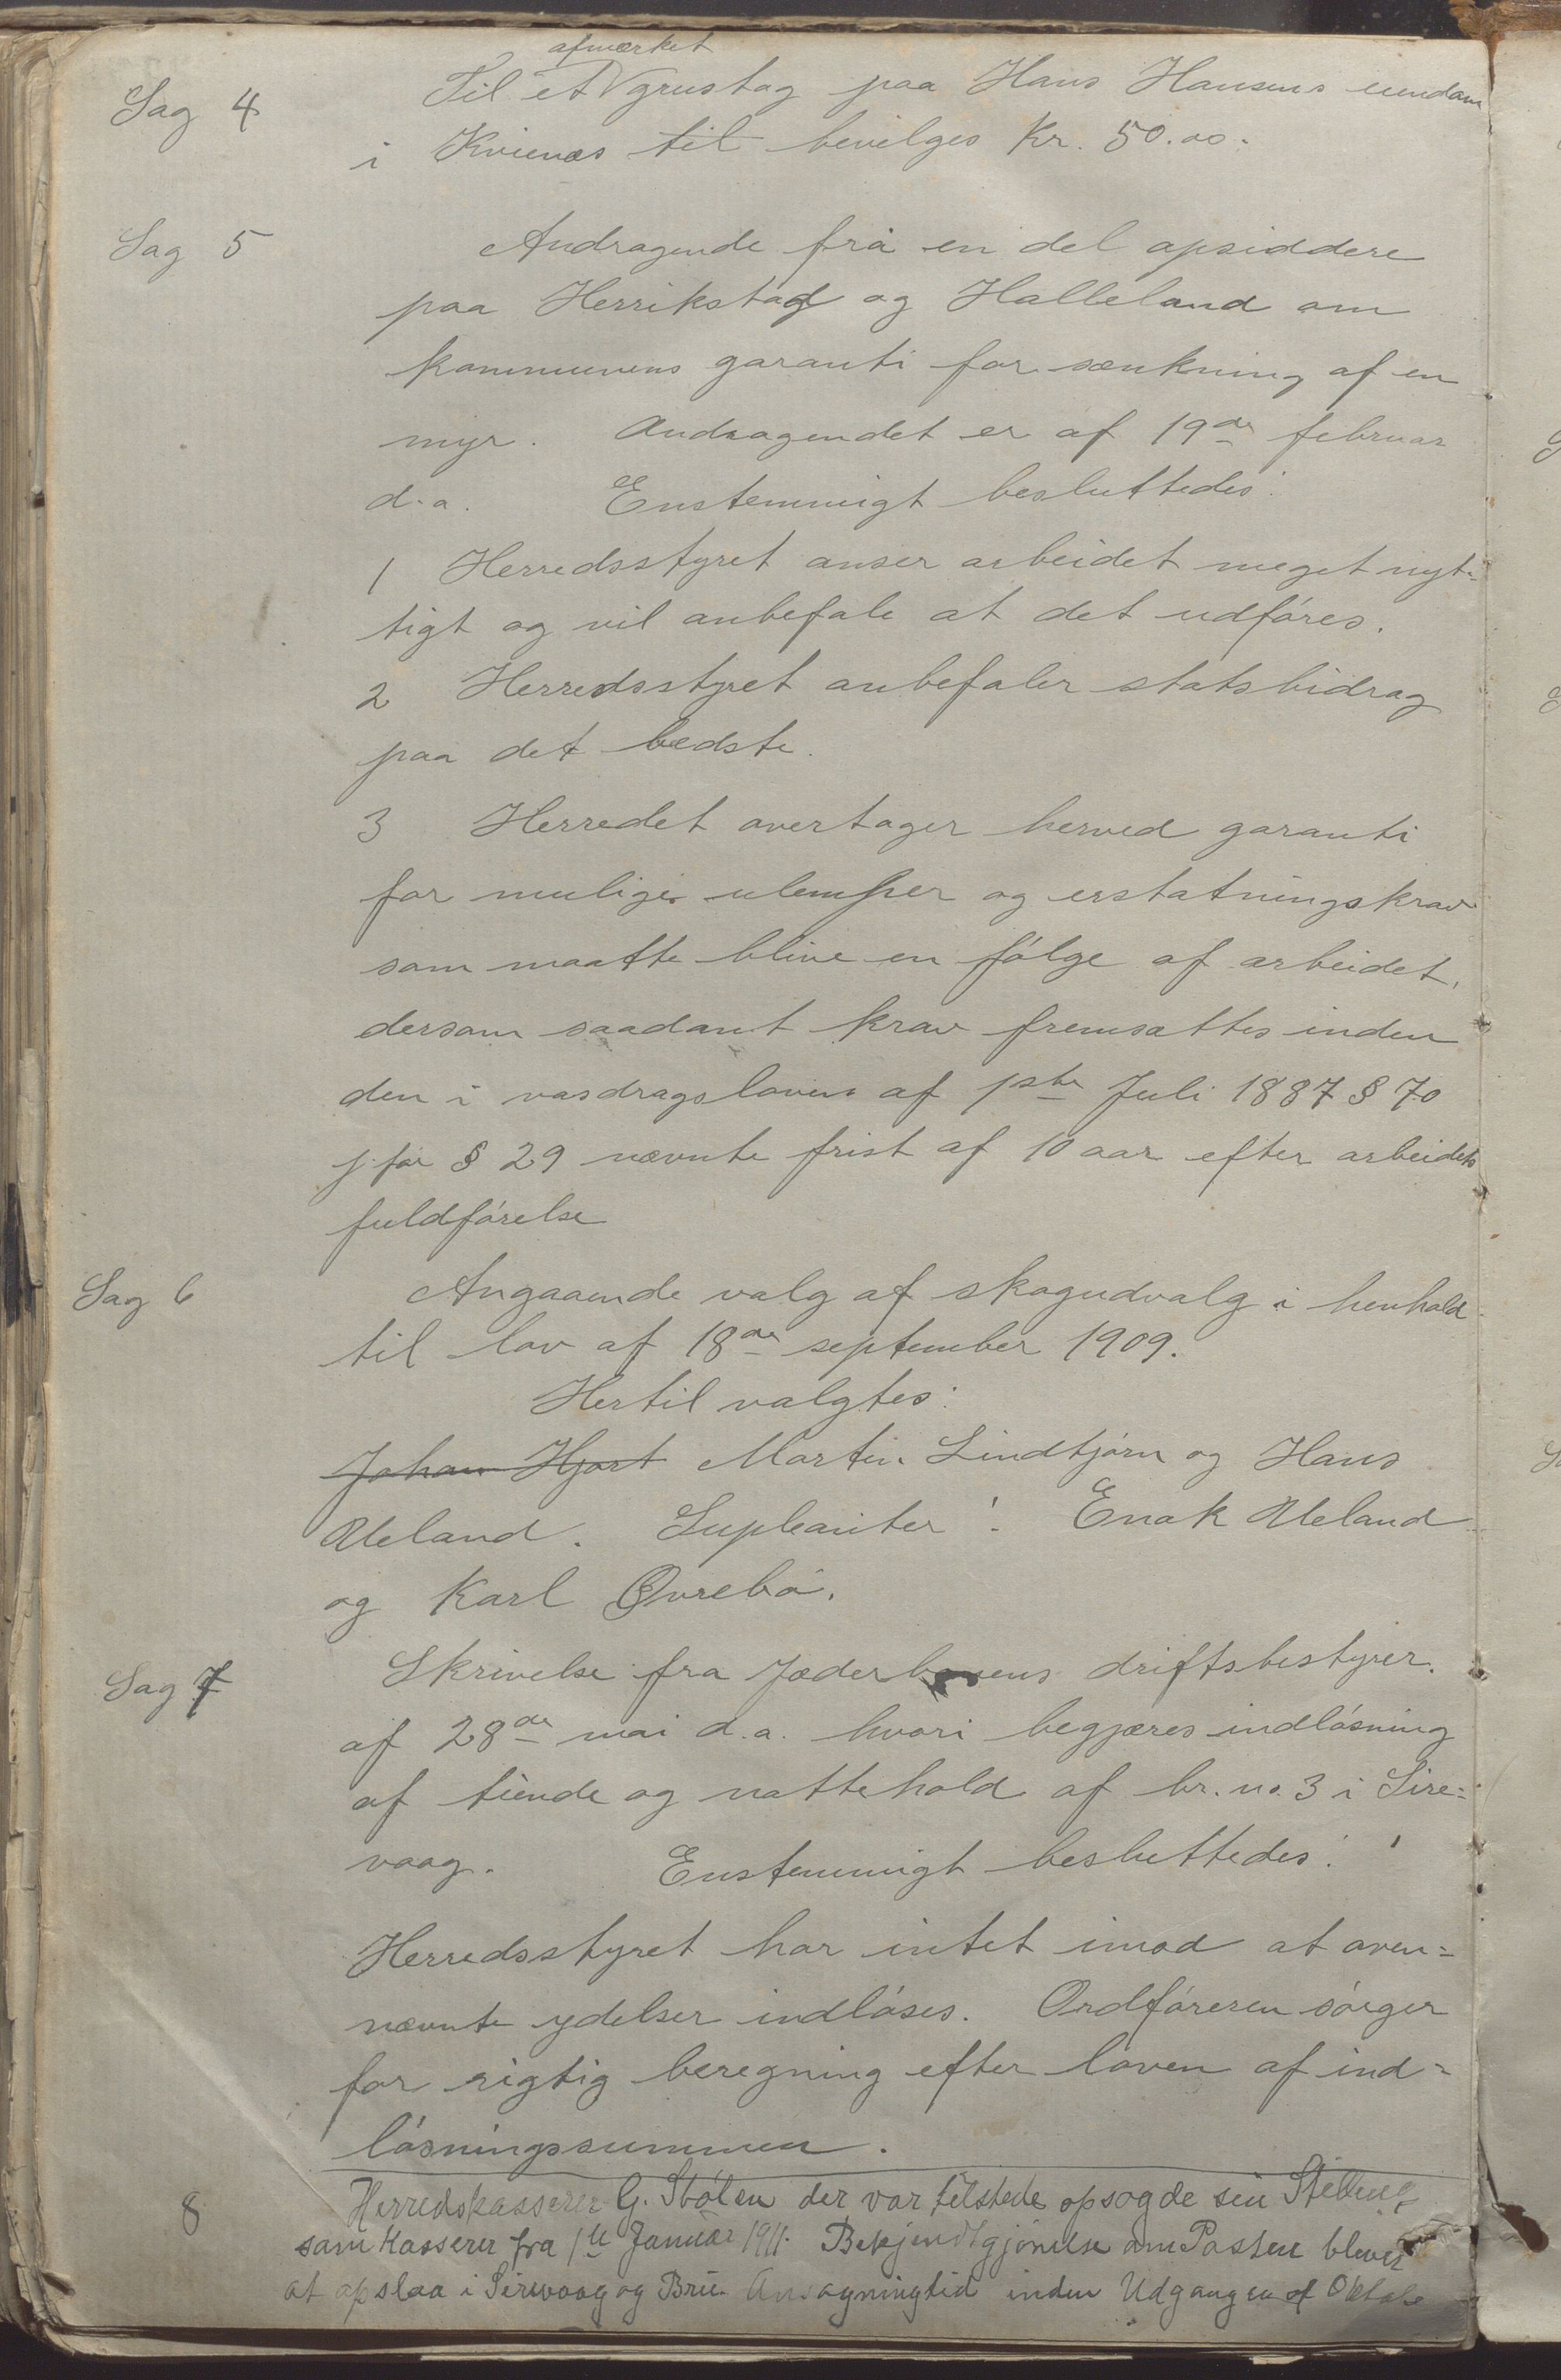 afmærket
Sag 4 Til et grustag paa Hans Hansens eiendom
i Kvienes til bevilges Kr. 50.00.
Sag 5 Andragende frá en del opsiddere
paa Herrikstad og Halleland om
kommunens garanti for sænkning af en
myr. Andragendet er af 19de februar
d.a. Enstemmigt besluttedes:
1 Herredsstyret anser arbeidet meget nyt-
tigt og vil anbefale at det udføres.
2 Herredsstyret anbefaler statsbidrag
paa det bedste.
3 Herredet overtager herved garanti
for mulige ulemper og erstatningskrav
som maatte blive en følge af arbeidet,
dersom saadant krav fremsættes inden
den i vasdragsloven af 1ste Juli 1887 § 70
jfør § 29 nævnte frist af 10 aar efter arbeidets
fuldførelse
Sag 6 Angaaende valg af skogudvalg i henhold
til lov af 18de september 1909.
Hertil valgtes:
Johan Hjort Martin Lindtjørn og Hans
Ueland. Supleanter: Enok Ueland
og Karl Øvrebø.
Sag 7 Skrivelse fra Jæderbanens driftsbestyrer
af 28de mai d.a. hvori begjæres indløsning
af tiende og nattehold af br. no. 3 i Sire-
vaag. Enstemmigt besluttedes:
Herredsstyret har intet imod at oven-
nævnte ydelser indløses. Ordføreren sørger
for rigtig beregning efter loven af ind-
løsningssummen.
8 Herredskasserer G. Stølen der var tilstede opsagde sin Stilling
som Kasserer fra 1te Januar 1911. Bekjendtgjørelse om Posten bliver
at opslaa i Sirevaag og Bru. Ansøgningtid inden Udgangen af Oktober